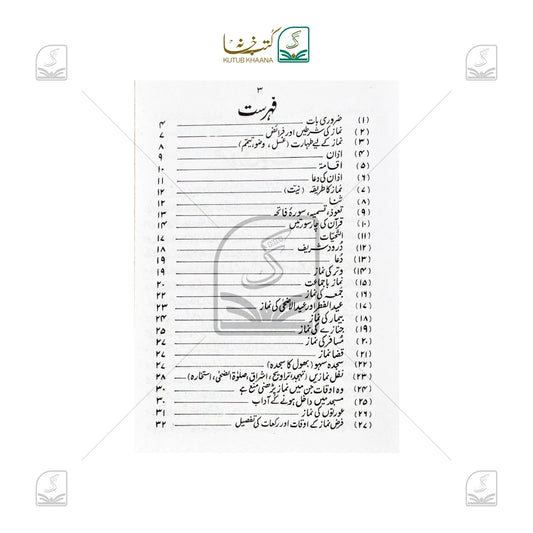 کتب خانہ
KUTUB KHAANA
۳
فہرست
(۱) ضروری بات ۴
(۲) نماز کی شرطیں اور فرائض ۷
(۳) نماز کے لیے طہارت (غسل ، وضو ، تیمّم) ۸
(۴) اذان ۹
(۵) اقامۃ ۱۰
(۶) اذان کی دعا ۱۱
(۷) نماز کا طریقہ (نیت) ۱۲
(۸) ثنا ۱۲
(۹) تعوذ، تسمیہ، سورۂ فاتحہ ۱۳
(۱۰) قرآن کی چار سورتیں ۱۴
(۱۱) التحیات ۱۷
(۱۲) درود شریف ۱۸
(۱۳) دعا ۱۹
(۱۴) وتر کی نماز ۱۹
(۱۵) نماز باجماعت ۲۰
(۱۶) جمعہ کی نماز ۲۲
(۱۷) عید الفطر اور عید الاضحیٰ کی نماز ۲۳
(۱۸) بیمار کی نماز ۲۴
(۱۹) جنازے کی نماز ۲۵
(۲۰) مسافر کی نماز ۲۷
(۲۱) قضا نماز ۲۷
(۲۲) سجدہ سہو (بھول کا سجدہ) ۲۷
(۲۳) نفل نمازیں (تہجد، تراویح ، اشراق، صلوٰۃ الضحیٰ، استخارہ) ۲۸
(۲۴) وہ اوقات جن میں نماز پڑھنی منع ہے ۳۰
(۲۵) مسجد میں داخل ہونے کے آداب ۳۰
(۲۶) عورتوں کی نماز ۳۱
(۲۷) فرض نماز کے اوقات اور رکعات کی تفصیل ۳۲